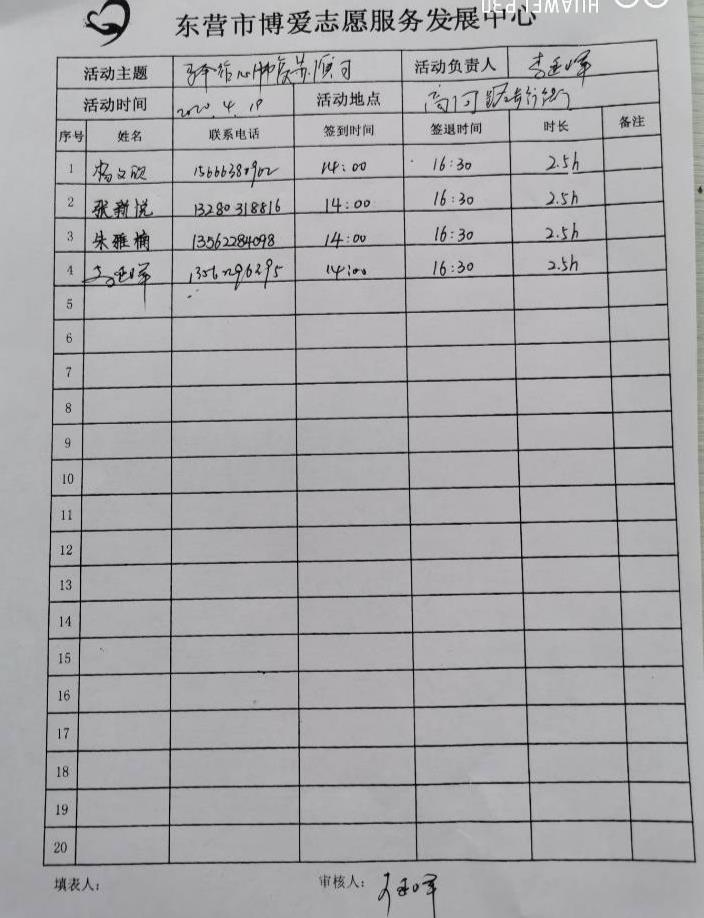 HUAWEI P30
东营市博爱志愿服务发展中心
活动主题 活动负责人
活动时间 2020.4.19 活动地点
序号 姓名 联系电话 签到时间 签退时间 时长 备注
1 14:00 16:30 2.5h
2 张新悦 13280318816 14:00 16:30 2.5h
3 朱雅楠 13562284098 14:00 16:30 2.5h
4 14:00 16:30 2.5h
5
6
7
8
9
10
11
12
13
14
15
16
17
18
19
20
填表人: 审核人: